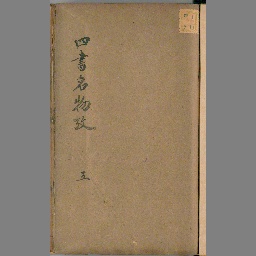 四書名物攷
五